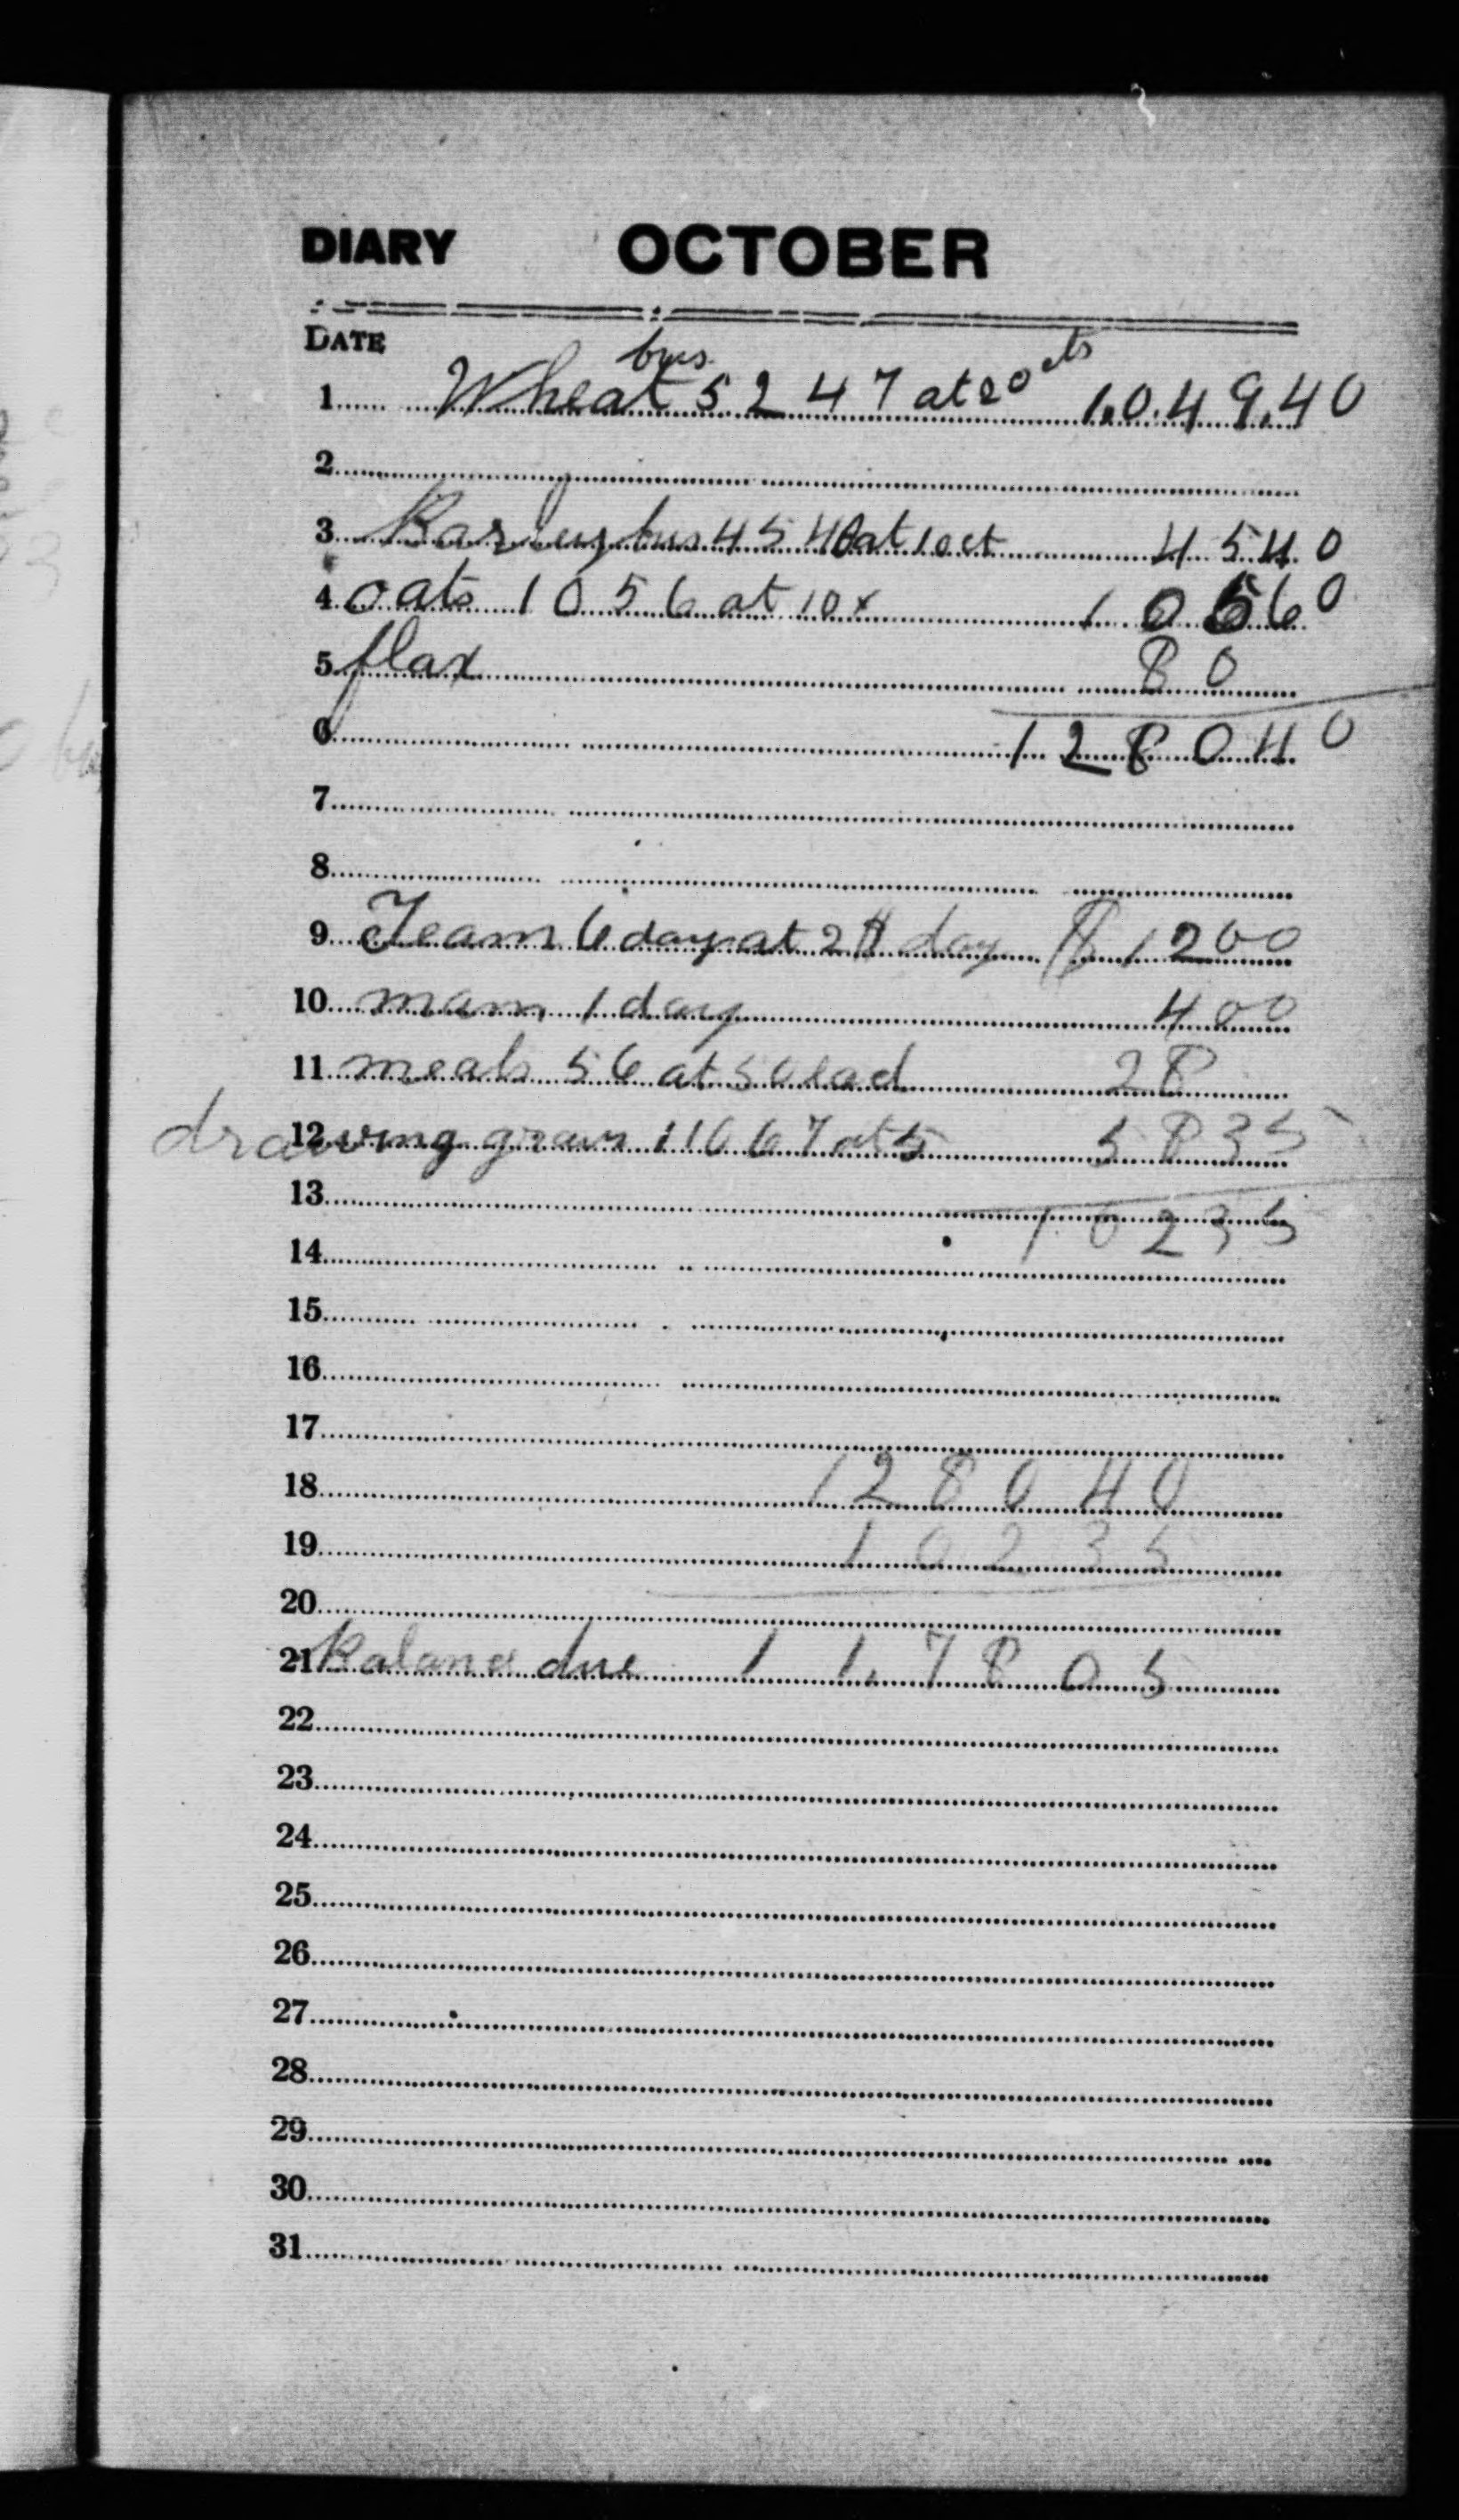 DIARY OCTOBER
DATE
1 Wheat bus 5247 at 20 cts 1,049,40
2
3 Barley bus 4540 at 10 ct 4540
4 oats 1056 at 10 x 10560
5 flax 80
6 128040
7
8
9 Team 6 day at 2 $ day $ 1200
10 man 1 day 400
11 meals 56 at 50 ead 28
12 drawing grain 11667 at 5 5835
13 10235
14
15
16
17
18 128040
19 10235
20
21 Balance due 1 1,7805
22
23
24
25
26
27
28
29
30
31